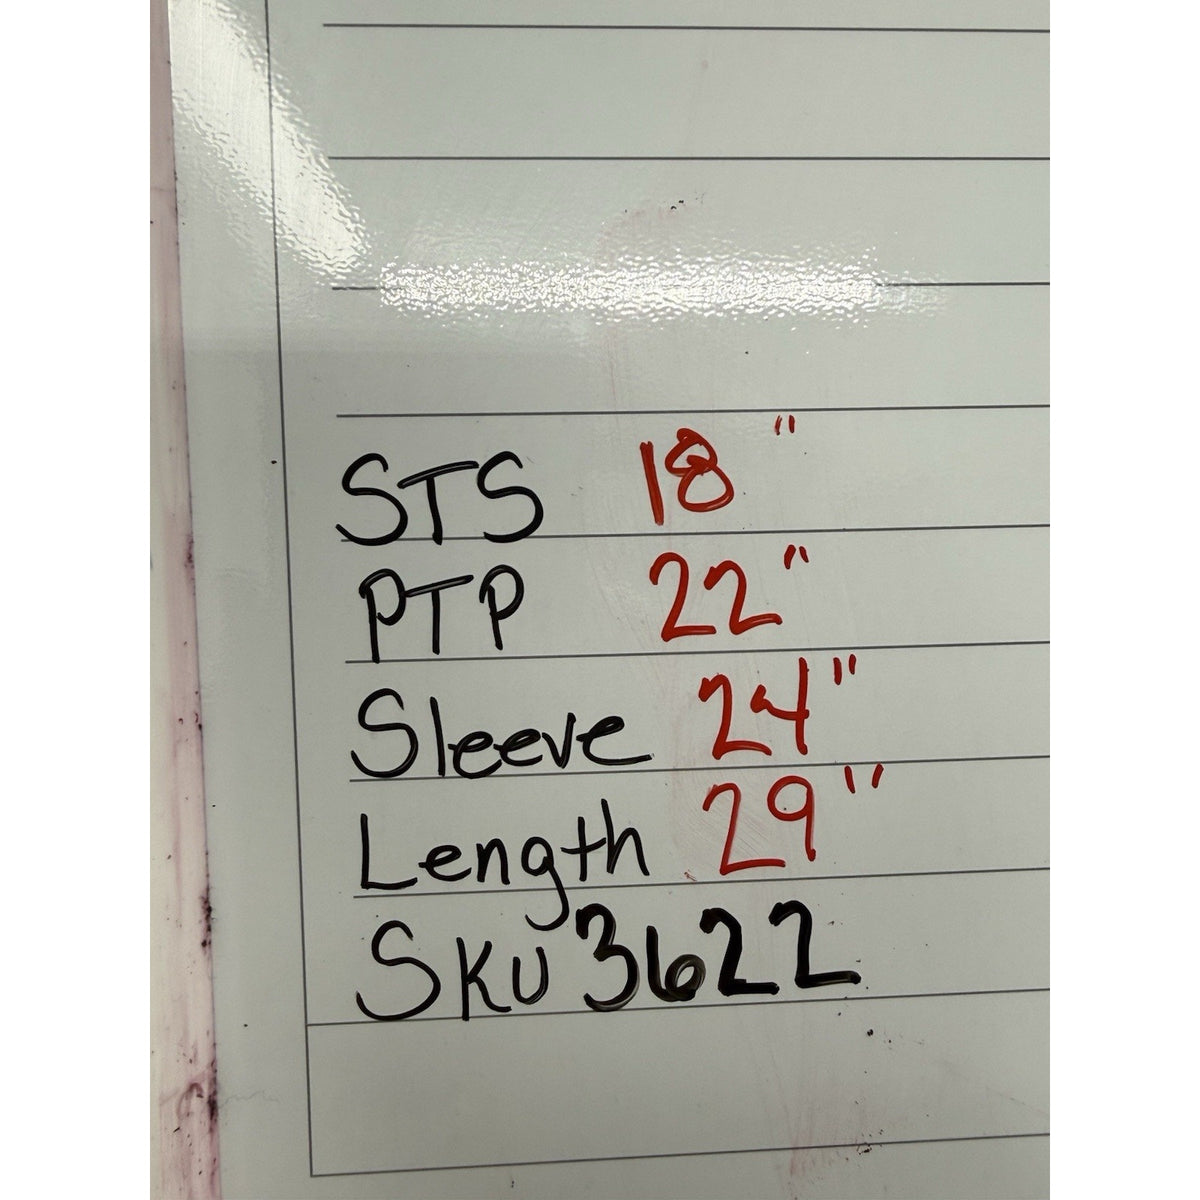 STS 18"
PTP 22"
Sleeve 24"
Length 29"
SKU 3622